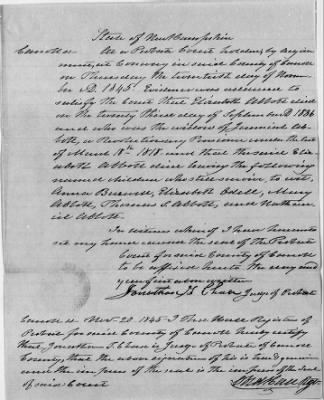 State of New Hampshire
Carroll ss. At a Probate Court holden by adjourn
ment, at Conway in said County of Carroll
on Thursday the twentieth day of Novem
ber AD. 1845. Evidence was adduced to
satisfy the Court that Elizabeth Abbott died
on the twenty third day of September AD 1836
and who was the widow of Jeremiah Ab-
bott, a Revolutionary Pensioner under the act
of March 18th 1818. and that the said Eliz-
abeth Abbott died leaving the following
named children who still survive to wit,
Anna Elizabeth Odell, Mary
Abbott, Thomas S. Abbott, and Nathan
iel Abbott.
In witness whereof I have hereunto
set my hand and the seal of the Probate
Court for said County of Carroll
to be affixed hereto the day and
year first above written
Jonathan T. Chase Judge of Probate
Carroll ss. Nov. 20. 1845 I Register of
Probate for said County of Carroll hereby certify
that Jonathan T. Chase is Judge of Probate of said
County, that the above signature of his is true & genuine
and the impress of the seal is the impress of the seal
of said Court